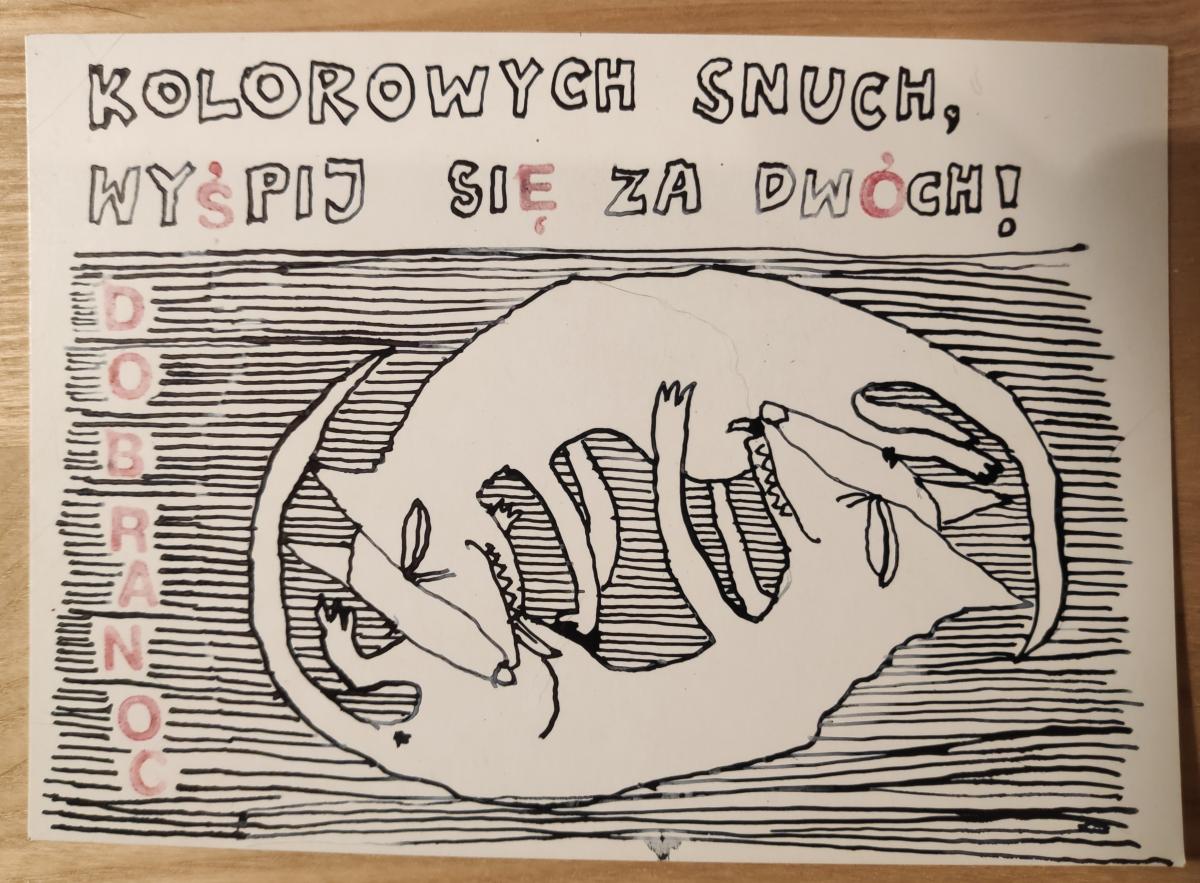 KOLOROWYCH SNUCH,
WYŚPIJ SIĘ ZA DWÓCH!
DOBRANOC